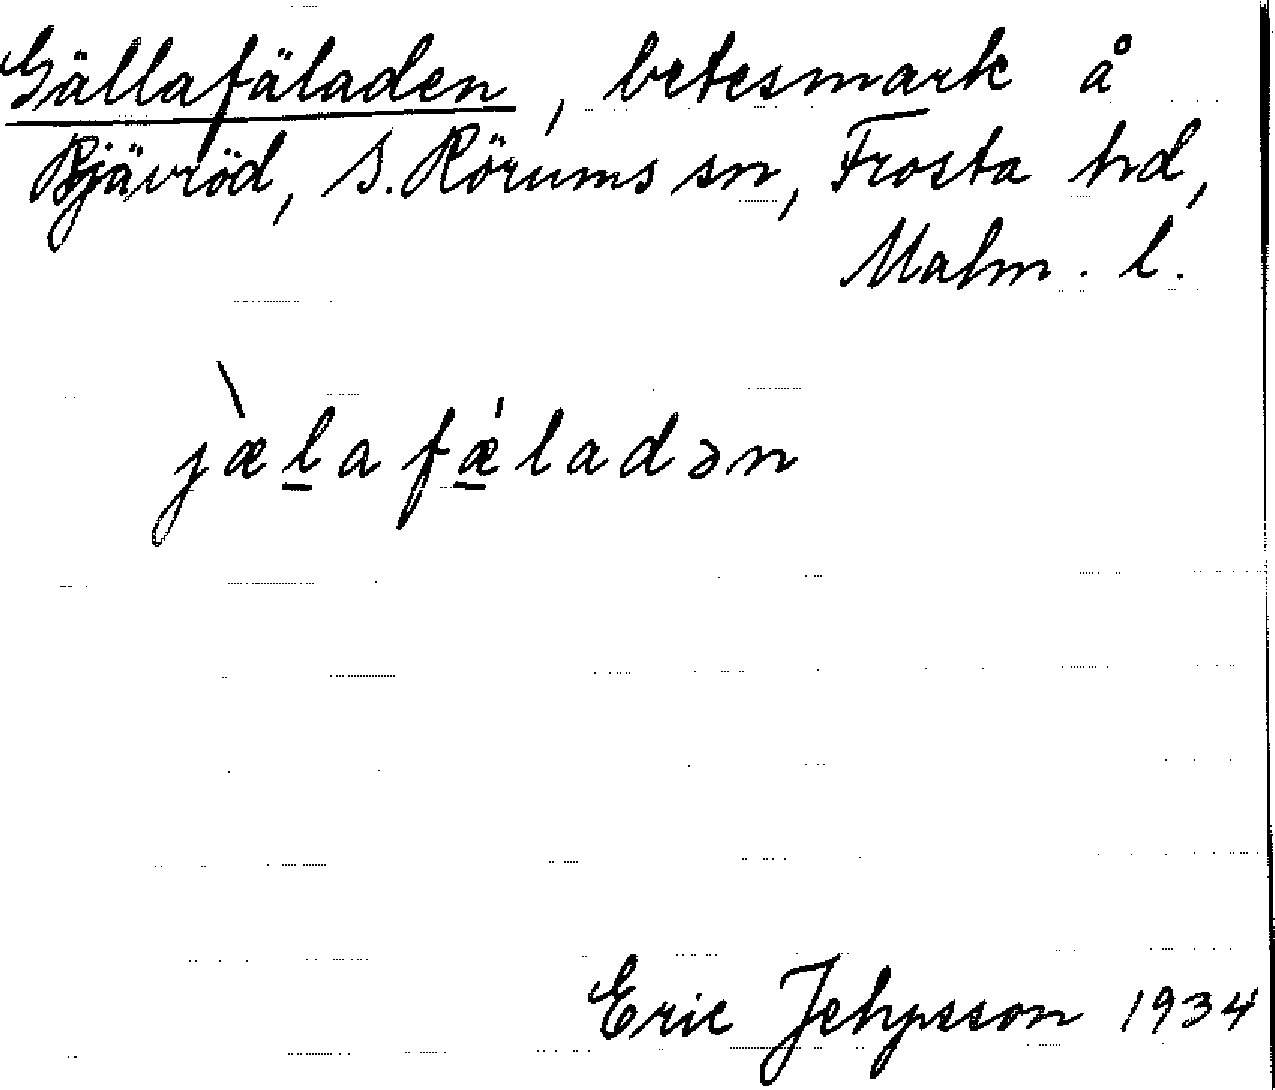 Gällafäladen, betesmark å
Bjävröd, S. Rörums sn, Frosta hd,
Malm. l.
jæ̀l̠afǽ̠ladən
Eric Jehpsson 1934